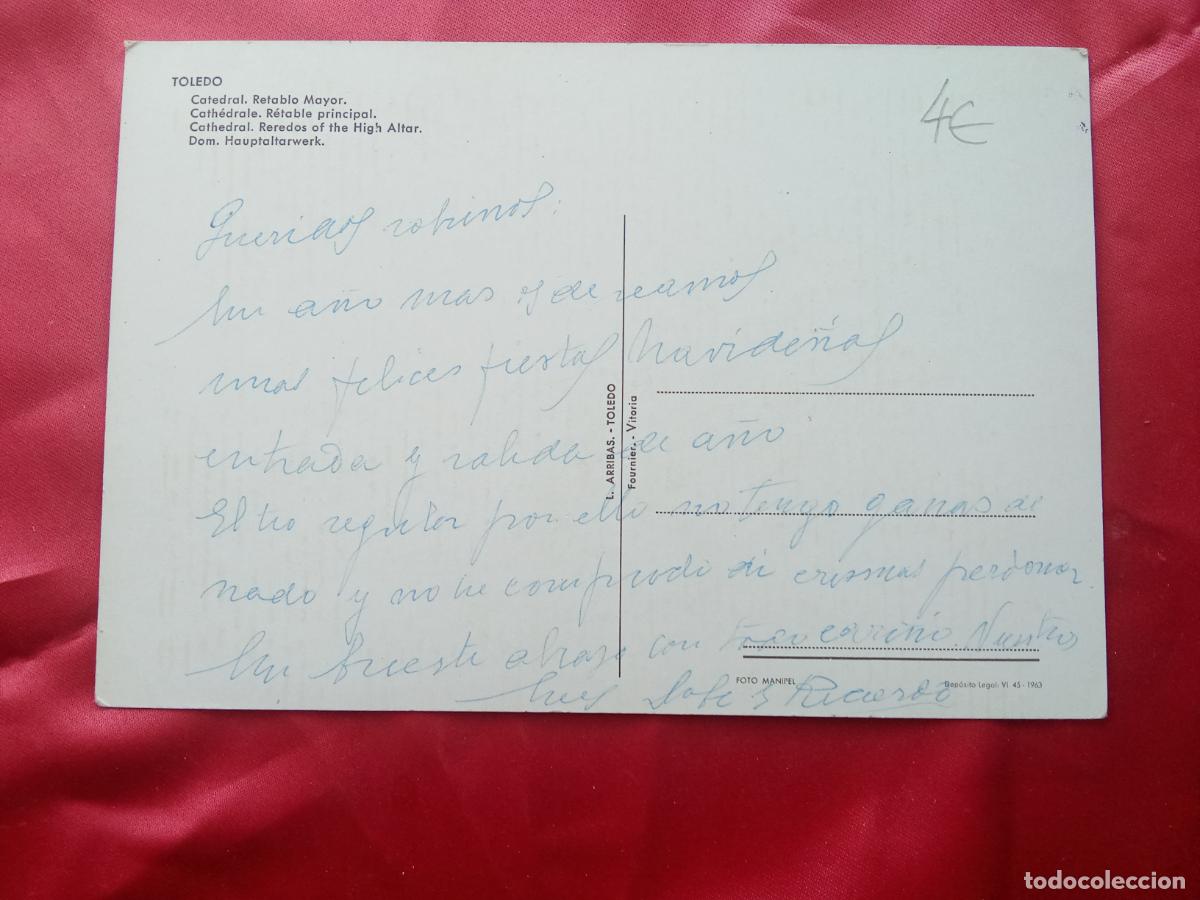 TOLEDO
Catedral. Retablo Mayor.
Cathédrale. Rétable principal.
Cathedral. Reredos of the High Altar.
Dom. Hauptaltarwerk.
4€
Queridos sobinos:
Un año mas os deseamos
unas felices fiestas Navideñas
entrada y salida de año
El tio regular por ello no tengo ganas de
nada y no he comprado di crismas perdonar.
Un fuerte abrazo con todo cariño. Nuestros
y Ricardo
L. ARRIBAS. - TOLEDO
Fournier. - Vitoria
FOTO MANIPEL
Depósito Legal: VI. 45 - 1963
todocoleccion